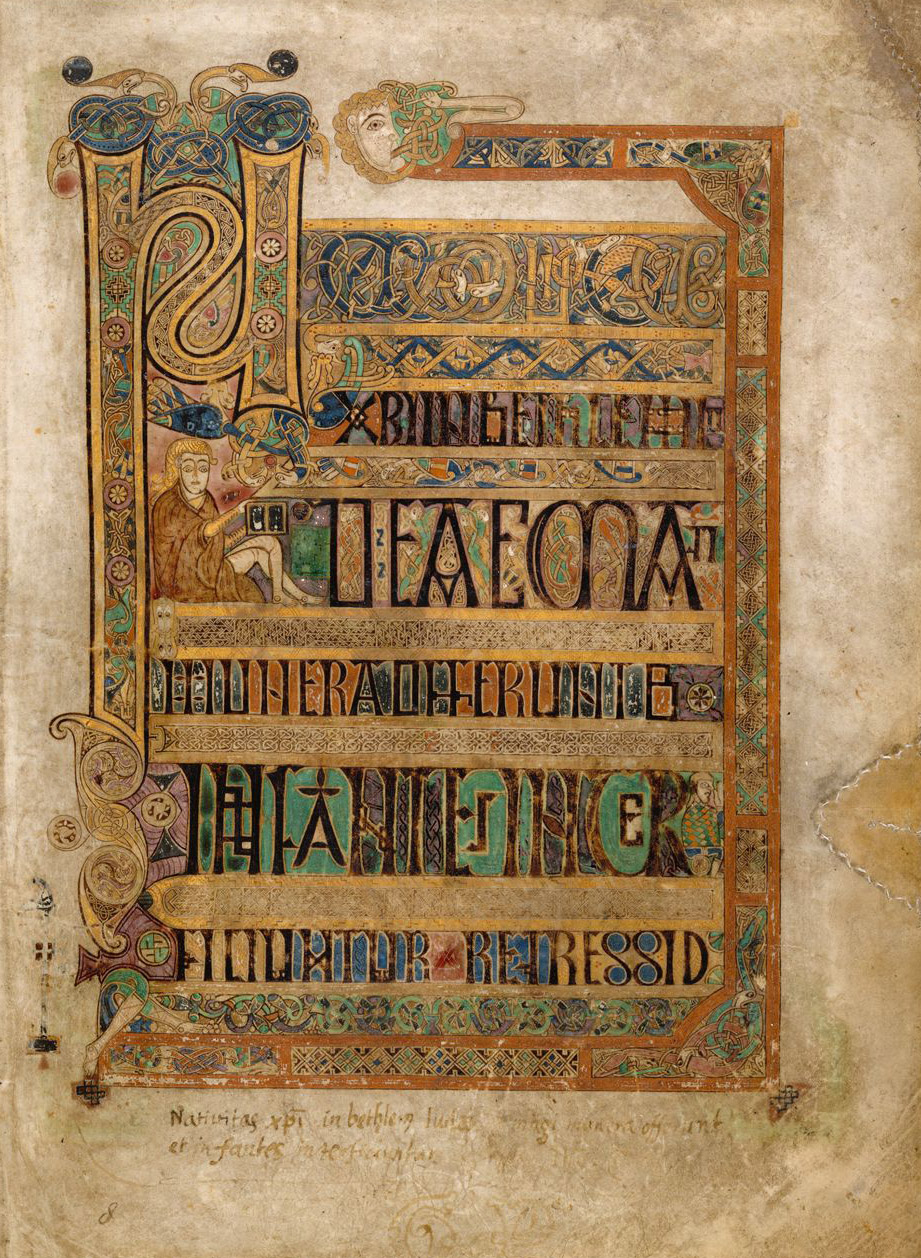 NATIUITAS
XPI IN BETHLEM
IUDEAE MAGI
MUNERA OFFERUNT E
T INFANTES INTER
FICIUNTUR REGRESSIO
Nativitas xp̄i in bethlem Iudeæ magi munera offerunt
et infantes interficiuntur
8